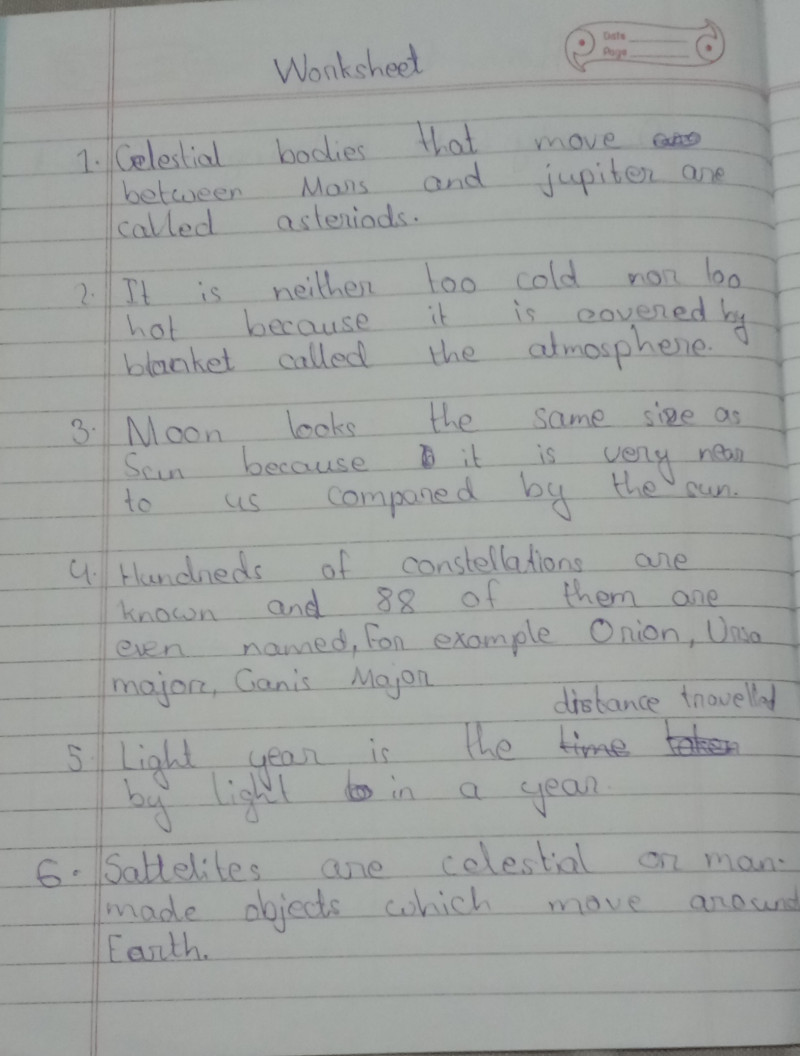 Date
Page
Worksheet
1. Celestial bodies that move
between Mars and jupiter are
called asteriods.
2. It is neither too cold nor too
hot because it is covered by
blanket called the atmosphere.
3. Moon looks the same size as
Sun because it is very near
to us compared by the sun.
4. Hundreds of constellations are
known and 88 of them are
even named, For example Orion, Ursa
major, Canis Major
distance travelled
5. Light year is the time taken
by light in a year.
6. Sattelites are celestial or man-
made objects which move around
Earth.